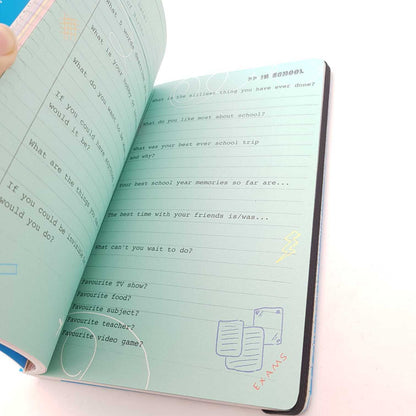 What 3 words
What is your
What do you want to be
If you could
would it be?
What are the things you
If you could be invisible
would you do?
>> IN SCHOOL
What is the silliest thing you have ever done?
What do you like most about school?
What was your best ever school trip
and why?
Your best school year memories so far are...
The best time with your friends is/was...
What can't you wait to do?
Favourite TV show?
Favourite food?
Favourite subject?
Favourite teacher?
Favourite video game?
EXAMS